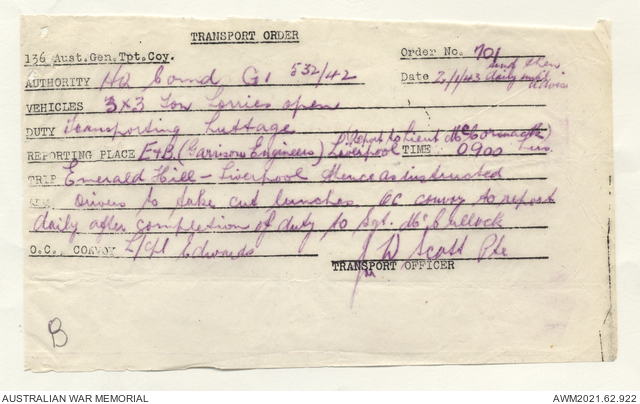 TRANSPORT ORDER
136 Aust.Gen.Tpt.Coy. Order No. 701
AUTHORITY HQ Comd G1 532/42 Date 2/1/43 and then daily until advise
VEHICLES 3 x 3 Ton Lorries open
DUTY Transporting Luttage
REPORTING PLACE E & B (Garrison Engineers) Liverpool (Report to Lieut McCormack) TIME 0900 hrs
TRIP Emerald Hill - Liverpool thence as instructed
Drivers to take cut lunches OC convoy to report
daily after completion of duty to Sgt. McCullock
O.C., CONVOY L/Cpl Edwards J D Scott Pte
TRANSPORT OFFICER
B
AUSTRALIAN WAR MEMORIAL AWM2021.62.922